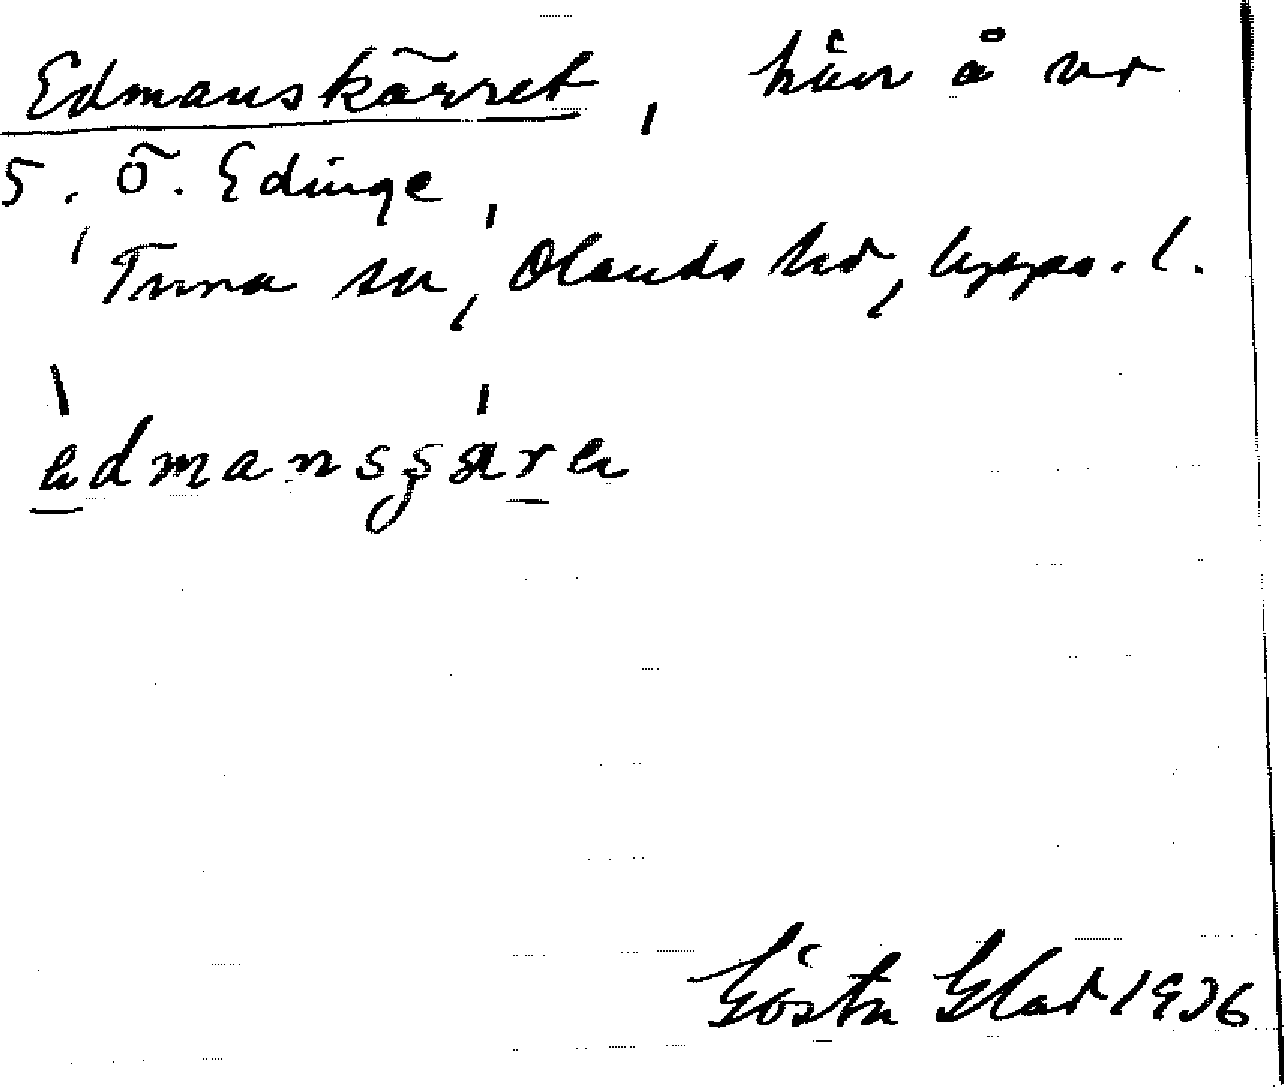 Edmanskärret, kärr å vr
5. Ö. Edinge,
Tuna sn, Olands hd, Upps. l.
Gösta Glad 1936